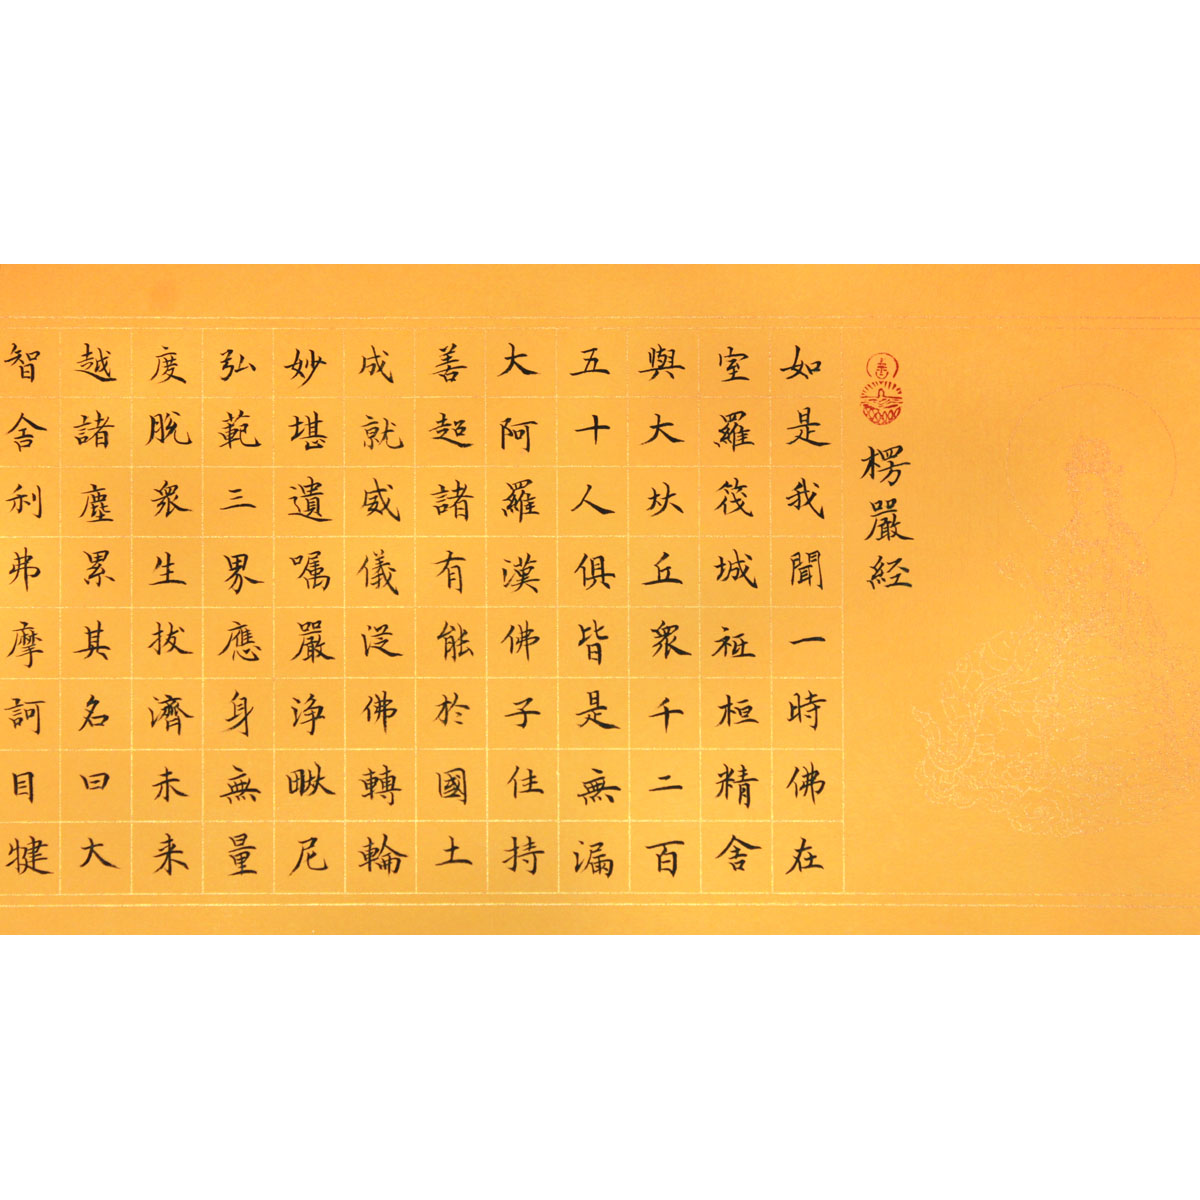 楞嚴经
如是我聞一時佛在
室羅筏城祗桓精舍
與大比丘衆千二百
五十人俱皆是無漏
大阿羅漢佛子住持
善超諸有能於國土
成就威儀從佛轉輪
妙堪遺嘱嚴淨毗尼
弘範三界應身無量
度脫衆生拔濟未来
越諸塵累其名曰大
智舍利弗摩訶目犍